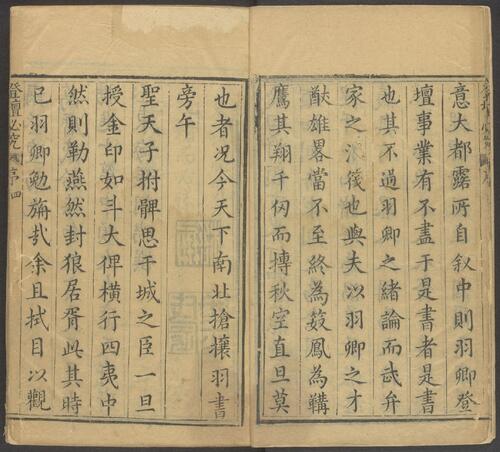 意大都露所自叙中則羽卿登
壇事業有不盡于是書者是書
也其不過羽卿之緒論而武弁
家之筏也與夫以羽卿之才
猷雄畧當不至終為籔鳳為韝
鷹其翔千仞而摶秋空直旦莫
也者况今天下南北搶攘羽書
旁午
聖天子拊髀思干城之臣一旦
授金印如斗大俾橫行四夷中
然則勒燕然封狼居胥此其時
已羽卿勉旃哉余且拭目以觀
登壇必究 序 四